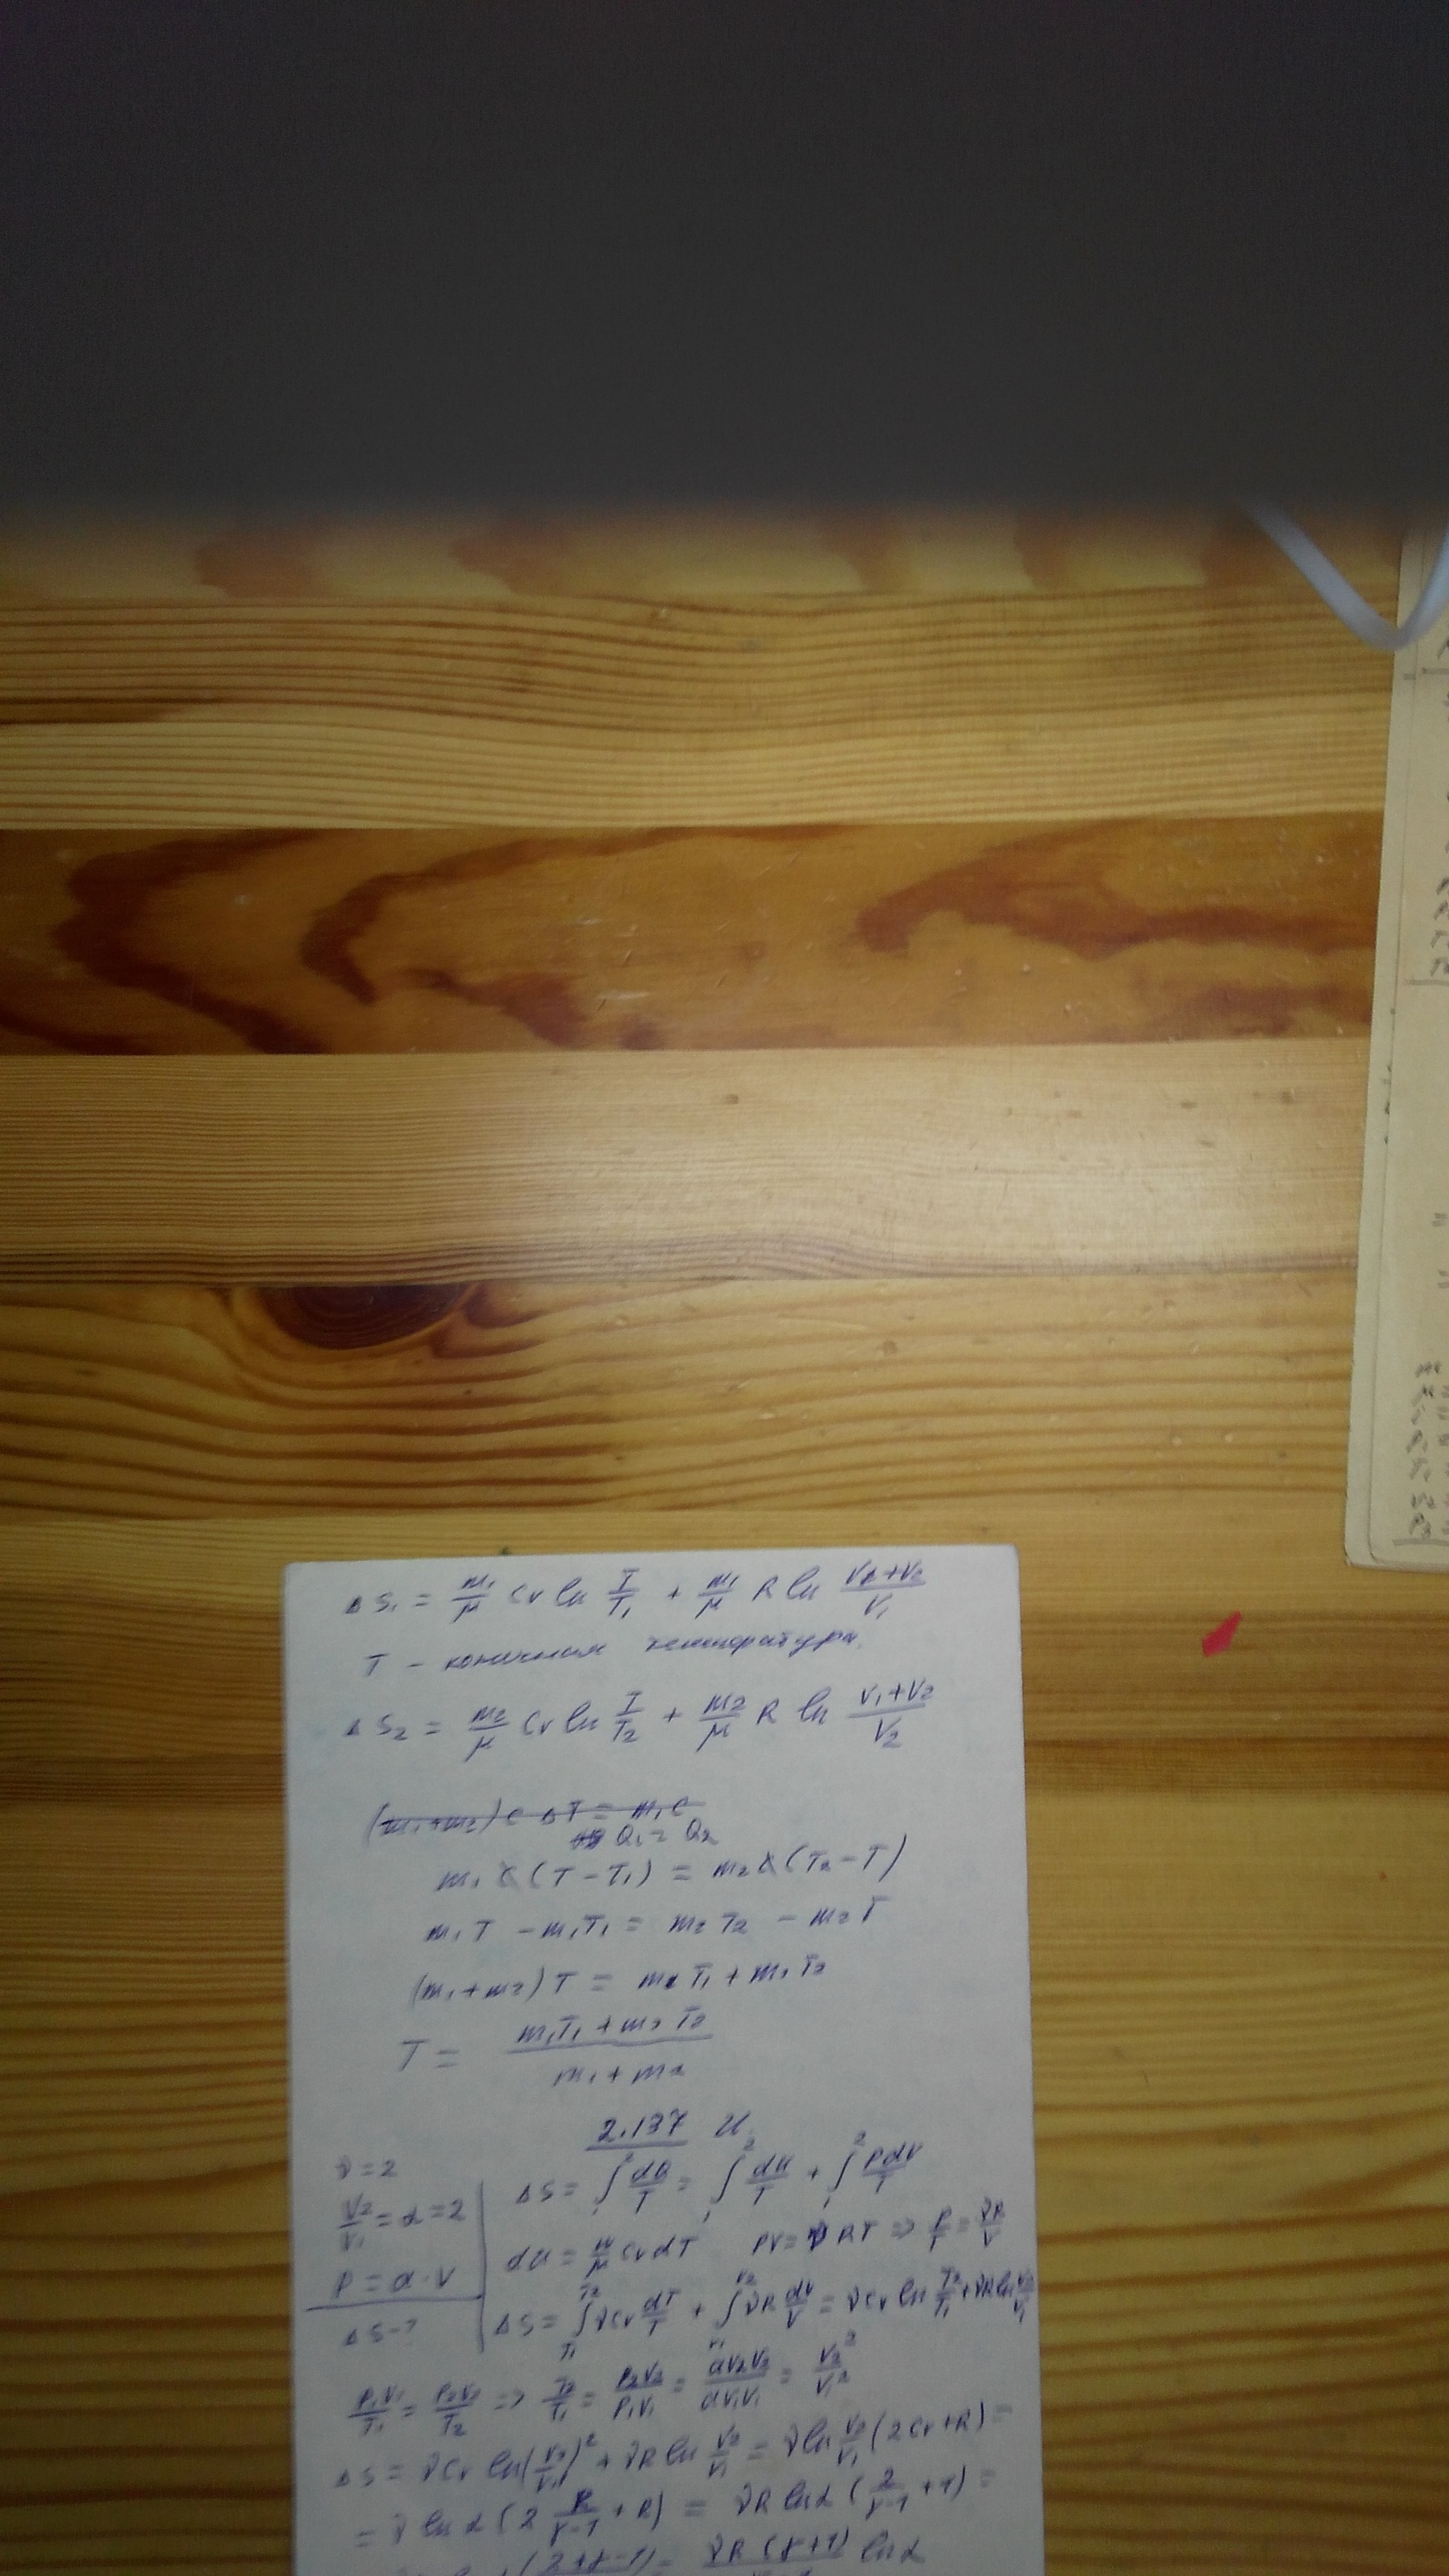 ΔS₁ = m₁/μ Cv ln T/T₁ + m₁/μ R ln (V₁+V₂)/V₁
T – конечная температура.
ΔS₂ = m₂/μ Cv ln T/T₂ + m₂/μ R ln (V₁+V₂)/V₂
(m₁+m₂) c ΔT = m₁ c
Q₁ = Q₂
m₁ c (T – T₁) = m₂ c (T₂ – T)
m₁T – m₁T₁ = m₂T₂ – m₂T
(m₁+m₂) T = m₁T₁ + m₂T₂
T = (m₁T₁ + m₂T₂)/(m₁+m₂)
2.137 И.
ν = 2
V₂/V₁ = α = 2
P = a·V
ΔS – ?
ΔS = ∫₁² dQ/T = ∫₁² dU/T + ∫₁² PdV/T
dU = m/μ Cv dT PV = νRT => P/T = νR/V
ΔS = ∫_T₁^T₂ νCv dT/T + ∫_V₁^V₂ νR dV/V = νCv ln T₂/T₁ + νR ln V₂/V₁
P₁V₁/T₁ = P₂V₂/T₂ => T₂/T₁ = P₂V₂/P₁V₁ = aV₂V₂/aV₁V₁ = V₂²/V₁²
ΔS = νCv ln(V₂/V₁)² + νR ln V₂/V₁ = ν ln V₂/V₁ (2Cv+R) =
= ν ln α (2 R/(γ–1) + R) = νR ln α (2/(γ–1) + 1) =
(2+γ–1) = νR(γ+1) ln α